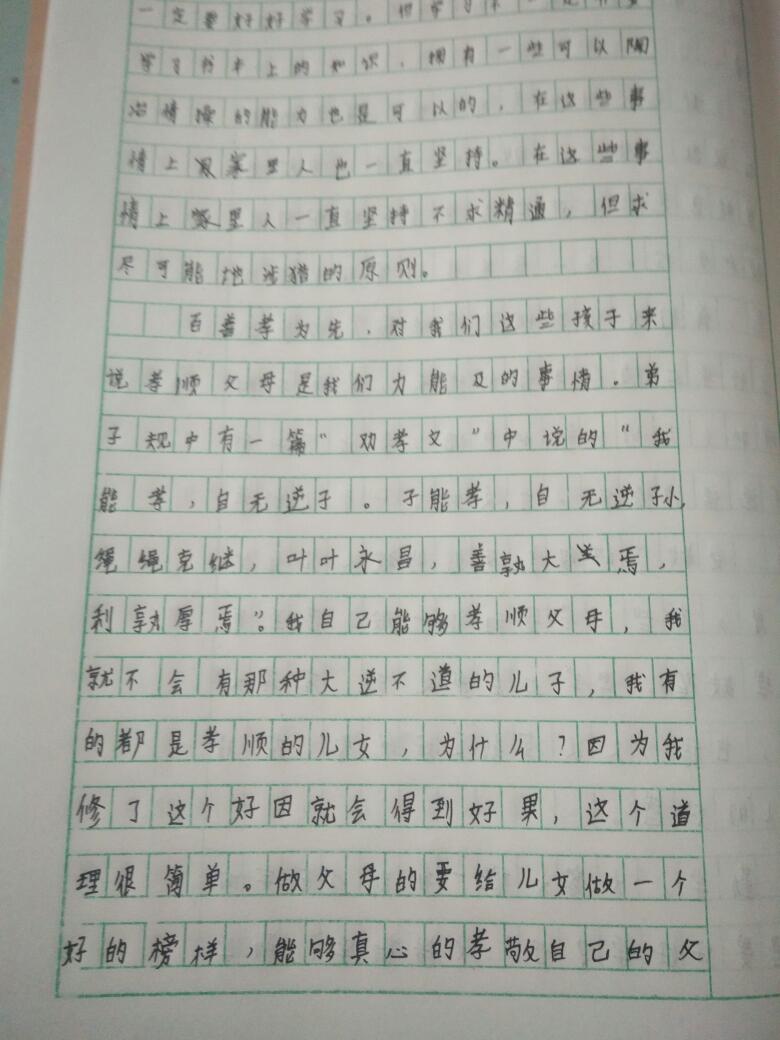 一定要好好学习。但学习不一定非要
学习书本上的知识，拥有一些可以陶
冶情操的能力也是可以的，在这些事
情上家里人也一直坚持。在这些事
情上家里人一直坚持不求精通，但求
尽可能地涉猎的原则。
百善孝为先，对我们这些孩子来
说孝顺父母是我们力能及的事情。弟
子规中有一篇“劝孝文”中说的“我
能孝，自无逆子。子能孝，自无逆孙，
绳绳克继，叶叶永昌，善孰大焉，
利孰厚焉”。我自己能够孝顺父母，我
就不会有那种大逆不道的儿子，我有
的都是孝顺的儿女，为什么？因为我
修了这个好因就会得到好果，这个道
理很简单。做父母的要给儿女做一个
好的榜样，能够真心的孝敬自己的父